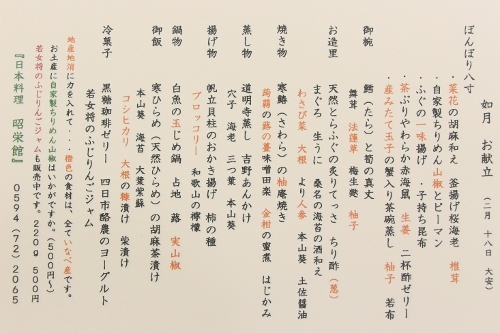 如月 お献立 (二月 十八日 大安)
ぼんぼり八寸
・菜花の胡麻和え 釜揚げ桜海老 椎茸
・自家製ちりめん山椒とピーマン
・ふぐの一味揚げ ・子持ち昆布
・茶ぶりやわらか赤海鼠 生姜 二杯酢ゼリー
・産みたて玉子の蟹入り茶碗蒸し 柚子 若布
御椀
鱈(たら)と筍の真丈
舞茸 法蓮草 梅生麩 柚子
お造里
天然とらふぐの炙りてっさ ちり酢(葱)
まぐろ 生うに 桑名の海苔の酒和え
わさび菜 大根 より人参 本山葵 土佐醤油
焼き物
寒鰆(さわら)の柚庵焼き
蒟蒻の蕗の薹味噌田楽 金柑の蜜煮 はじかみ
蒸し物
道明寺蒸し 吉野あんかけ
穴子 海老 三つ葉 本山葵
揚げ物
帆立貝柱のおかき揚げ 柿の種
ブロッコリー 和歌山の檸檬
鍋物
白魚の玉じめ鍋 占地 蕗 実山椒
御飯
寒ひらめ(天然ひらめ)の胡麻茶漬け
本山葵 海苔 大葉紫蘇
コシヒカリ 大根の糠漬け 柴漬け
冷菓子
黒糖珈琲ゼリー 四日市酪農のヨーグルト
若女将のふじりんごジャム
地産地消に力を入れて・・橙色の食材は、全ていなべ産です。
お土産に自家製ちりめん山椒はいかがですか。(500円~)
若女将のふじりんごジャムも販売中です。220g 500円
『日本料理 昭栄館』 0594(72)2065